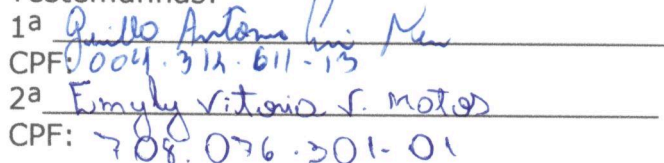 Testemunhas:
1ª Antônio
CPF: 004.314.611-13
2ª Emyly Vitoria V. Matos
CPF: 708.076.301-01